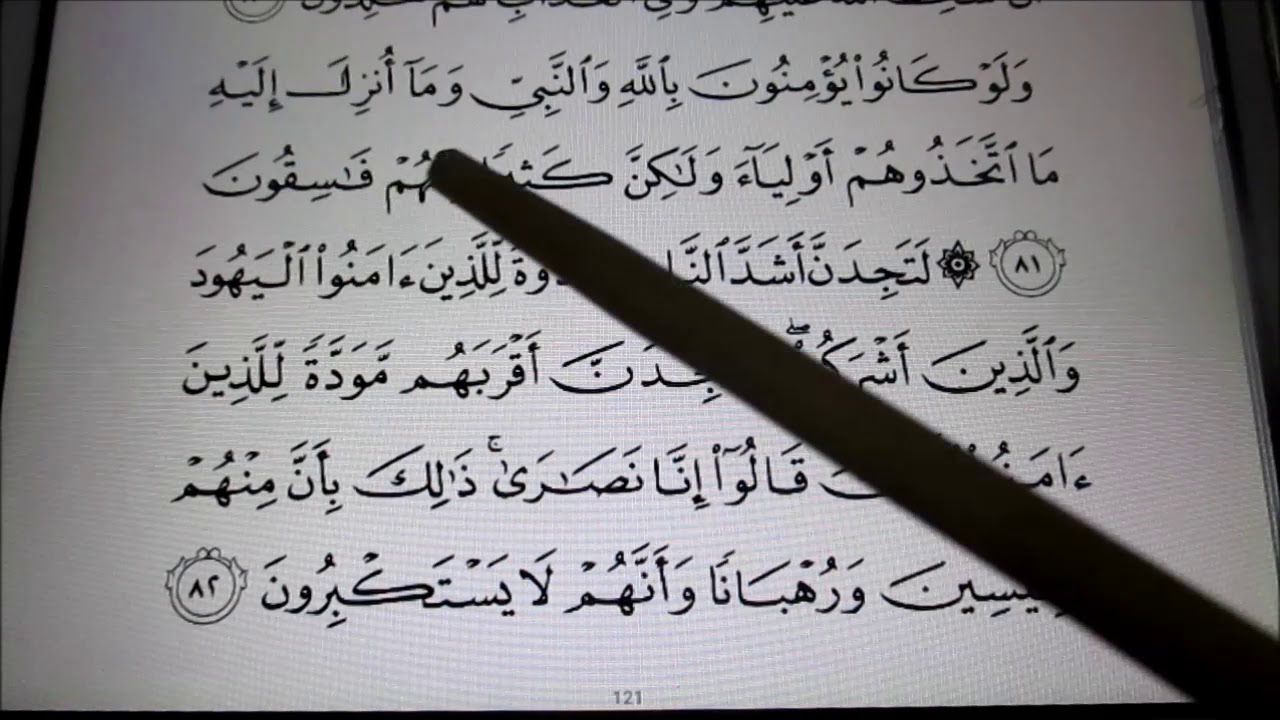 وَلَوۡ كَانُواْ يُؤۡمِنُونَ بِٱللَّهِ وَٱلنَّبِيِّ وَمَآ أُنزِلَ إِلَيۡهِ
مَا ٱتَّخَذُوهُمۡ أَوۡلِيَآءَ وَلَٰكِنَّ فَٰسِقُونَ
٨١ ۞ لَتَجِدَنَّ أَشَدَّ لِّلَّذِينَ ءَامَنُواْ ٱلۡيَهُودَ
وَٱلَّذِينَ أَقۡرَبَهُم مَّوَدَّةٗ لِّلَّذِينَ
قَالُوٓاْ إِنَّا نَصَٰرَىٰۚ ذَٰلِكَ بِأَنَّ مِنۡهُمۡ
وَرُهۡبَانٗا وَأَنَّهُمۡ لَا يَسۡتَكۡبِرُونَ ٨٢
121